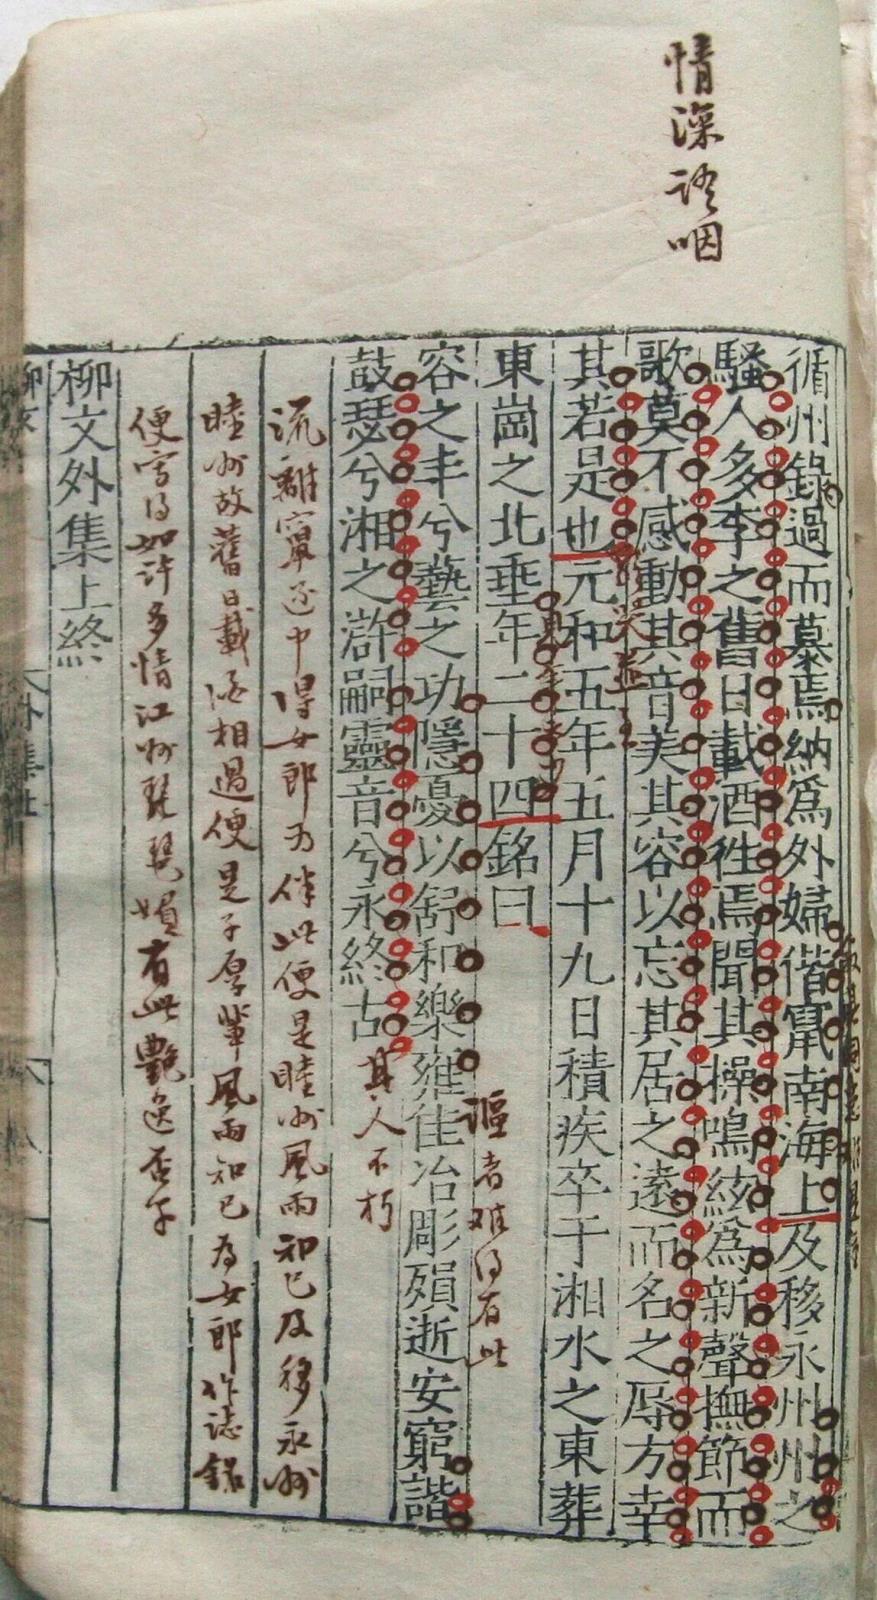 情深語咽
循州錄過而慕焉納爲外婦偕竄南海上及移永州州之
騷人多李之舊日載酒徃焉聞其操鳴絃爲新聲撫節而
歌莫不感動其音美其容以忘其居之遠而名之辱方幸
其若是也元和五年五月十九日積疾卒于湘水之東葬
東崗之北垂年二十四銘曰
謳者難得有此
容之丰兮藝之功隱憂以舒和樂雍佳冶彫殞逝安窮諧
鼓瑟兮湘之滸嗣靈音兮永終古
其人不朽
流離竄逐中得女郎为伴此便是睦州風雨知己及移永州
睦州故舊日載酒相過便是子厚輩風雨知己為女郎作誌銘
便寫得如許多情江州琵琶婦有此艷逸否乎
柳文外集上終
柳文 外集上